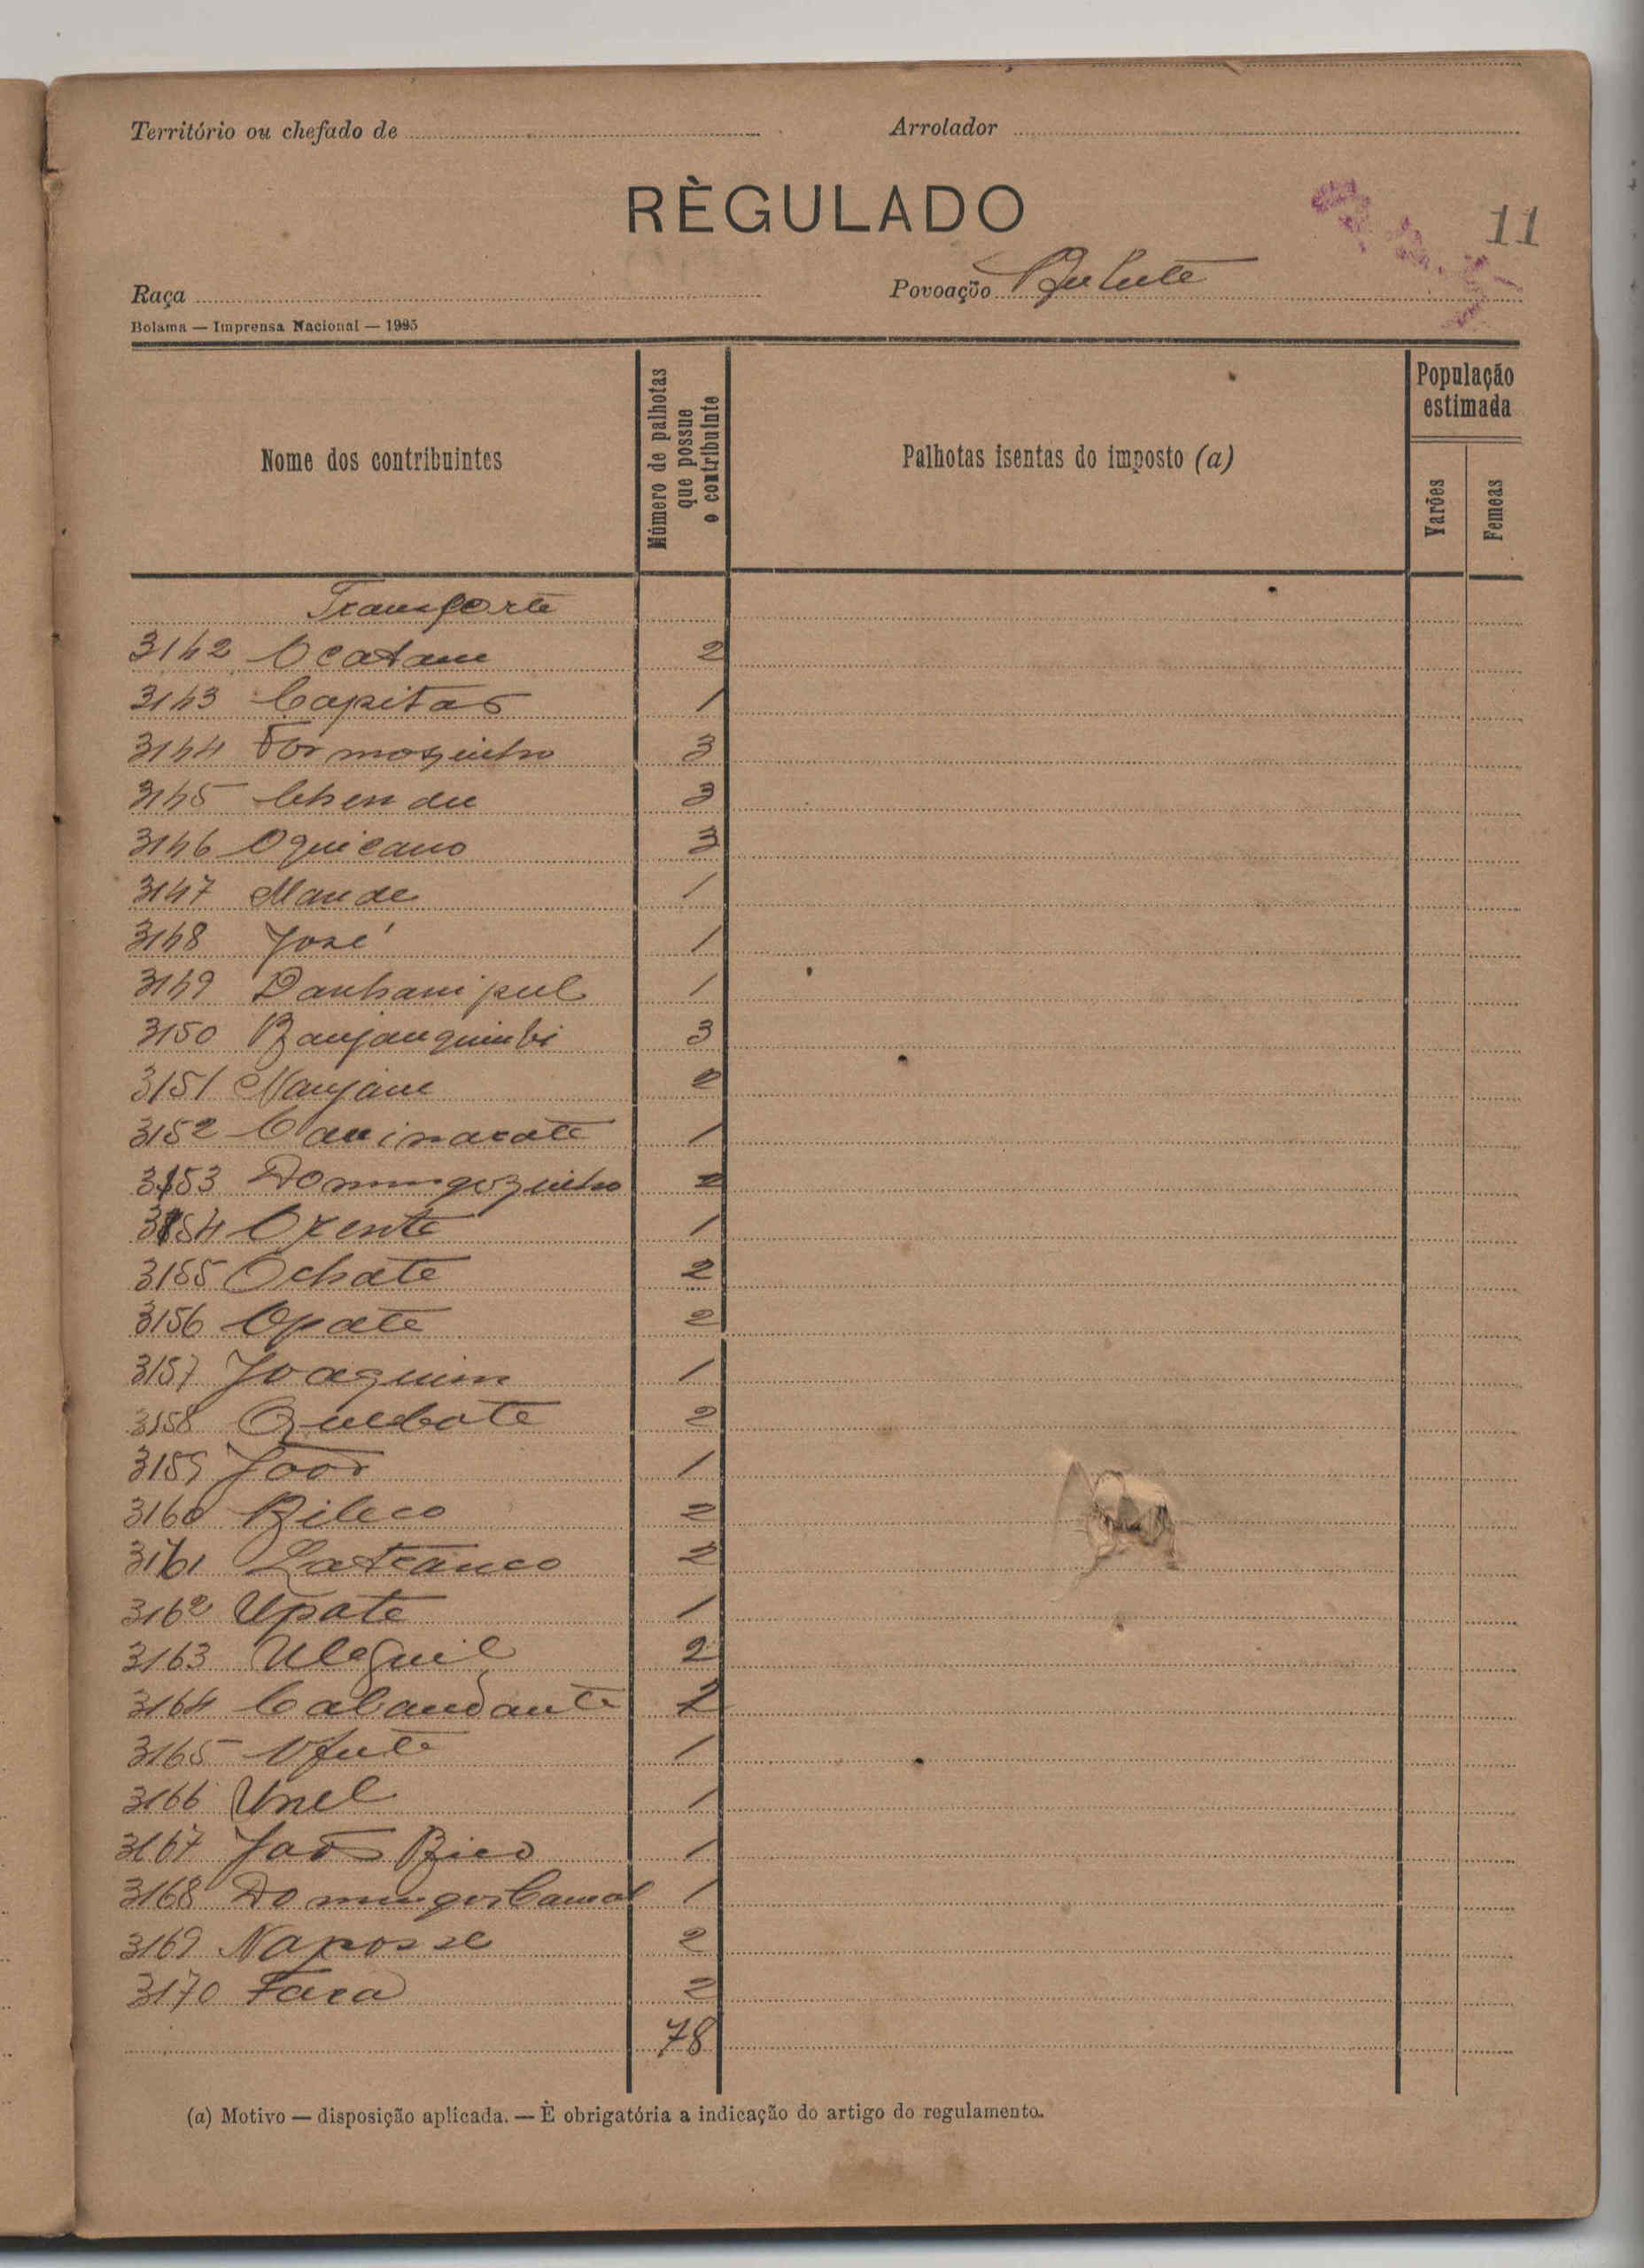 Território ou chefado de
Arrolador
RÈGULADO
11
Raça
Povoação
Bolama — Imprensa Nacional — 1925
Nome dos contribuintes
Número de palhotas que possue o contribuinte
Palhotas isentas do imposto (a)
População estimada
Varões
Femeas
Transporte
3142 Ocatam 2
3143 Capitao 1
3144 Formozinho 3
3145 3
3146 Oquicano 3
3147 Mande 1
3148 José 1
3149 1
3150 Banjanquimbi 3
3151 Nanjam 2
3152 1
3153 Domingozinho 2
3154 Ozente 1
3155 Ochate 2
3156 Opate 2
3157 Joaquim 1
3158 Quebate 2
3159 João 1
3160 Bileco 2
3161 2
3162 Upate 1
3163 2
3164 2
3165 1
3166 Unel 1
3167 João Bico 1
3168 Domingos 1
3169 Naposse 2
3170 Fara 2
78
(a) Motivo — disposição aplicada. — È obrigatória a indicação do artigo do regulamento.